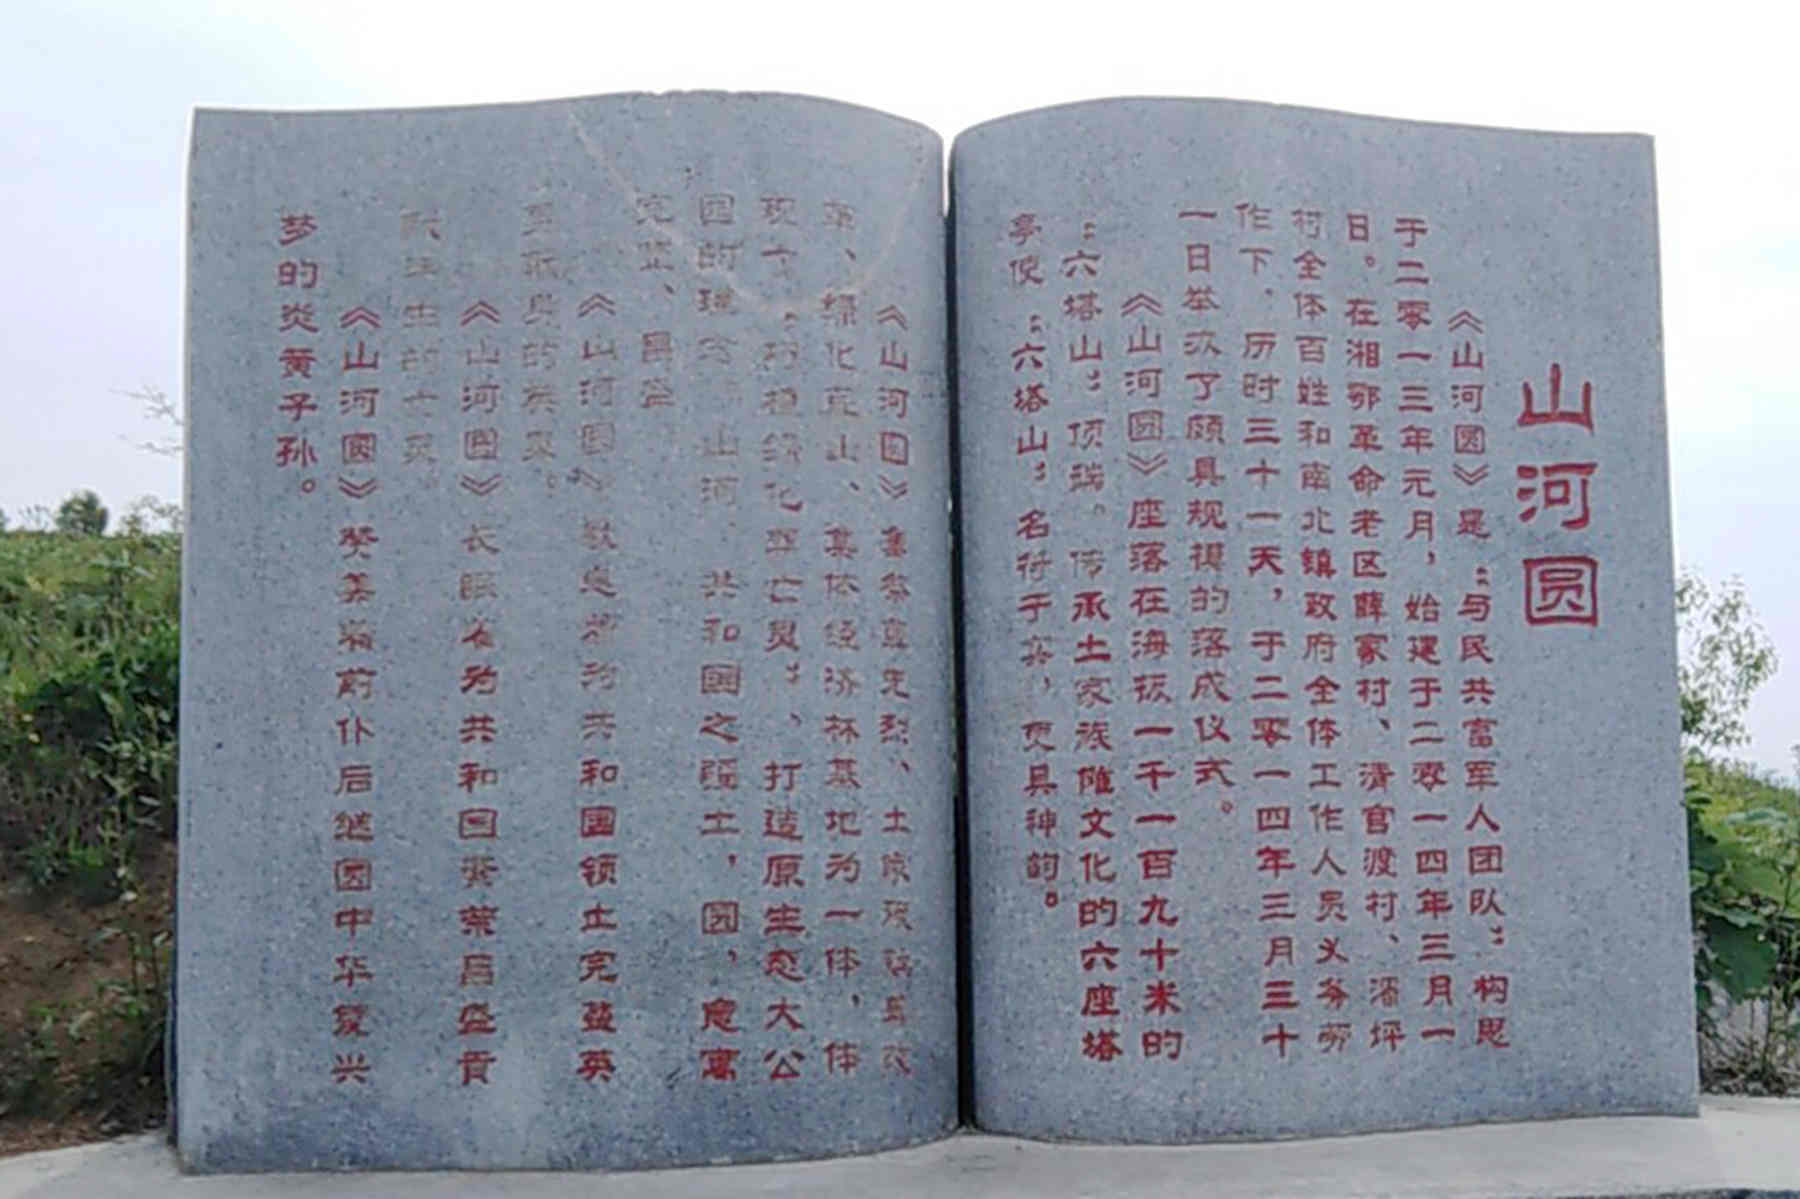 山河圆
《山河圆》是：与民共富军人团队：构思
于二零一三年元月，始建于二零一四年三月一
日。在湘鄂革命老区薛家村、清官渡村、潘坪
村全体百姓和南北镇政府全体工作人员义务劳
作下，历时三十一天，于二零一四年三月三十
一日举办了颇具规模的落成仪式。
《山河圆》座落在海拔一千一百九十米的
：六塔山：顶端。传承土家族傩文化的六座塔
亭使：六塔山：名符于实，更具神韵。
《山河圆》集祭奠先烈、土家
、绿化荒山、集体经济林基地为一体，体
现了：植绿化平亡灵：、打造原生态大公
园的理念。山河，共和国之疆土，圆，意寓
完整、昌盛。
《山河圆》为共和国领土完整英
勇献身的英灵。
《山河圆》长眠在为共和国繁荣昌盛贡
的英
《山河圆》前仆后继圆中华复兴
梦的炎黄子孙。